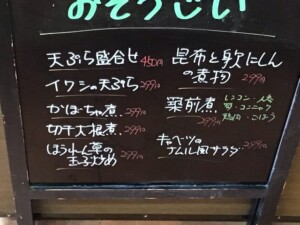 おそうざい
天ぷら盛合せ 450円
イワシの天ぷら 299円
かぼちゃ煮 299円
切干大根煮 299円
ほうれん草の
玉子炒め 299円
昆布と身欠にしん
の煮物 299円
筑前煮 299円
レンコン・人参
筍・コンニャク
鶏肉・ごぼう
キャベツの
ナムル風サラダ 299円